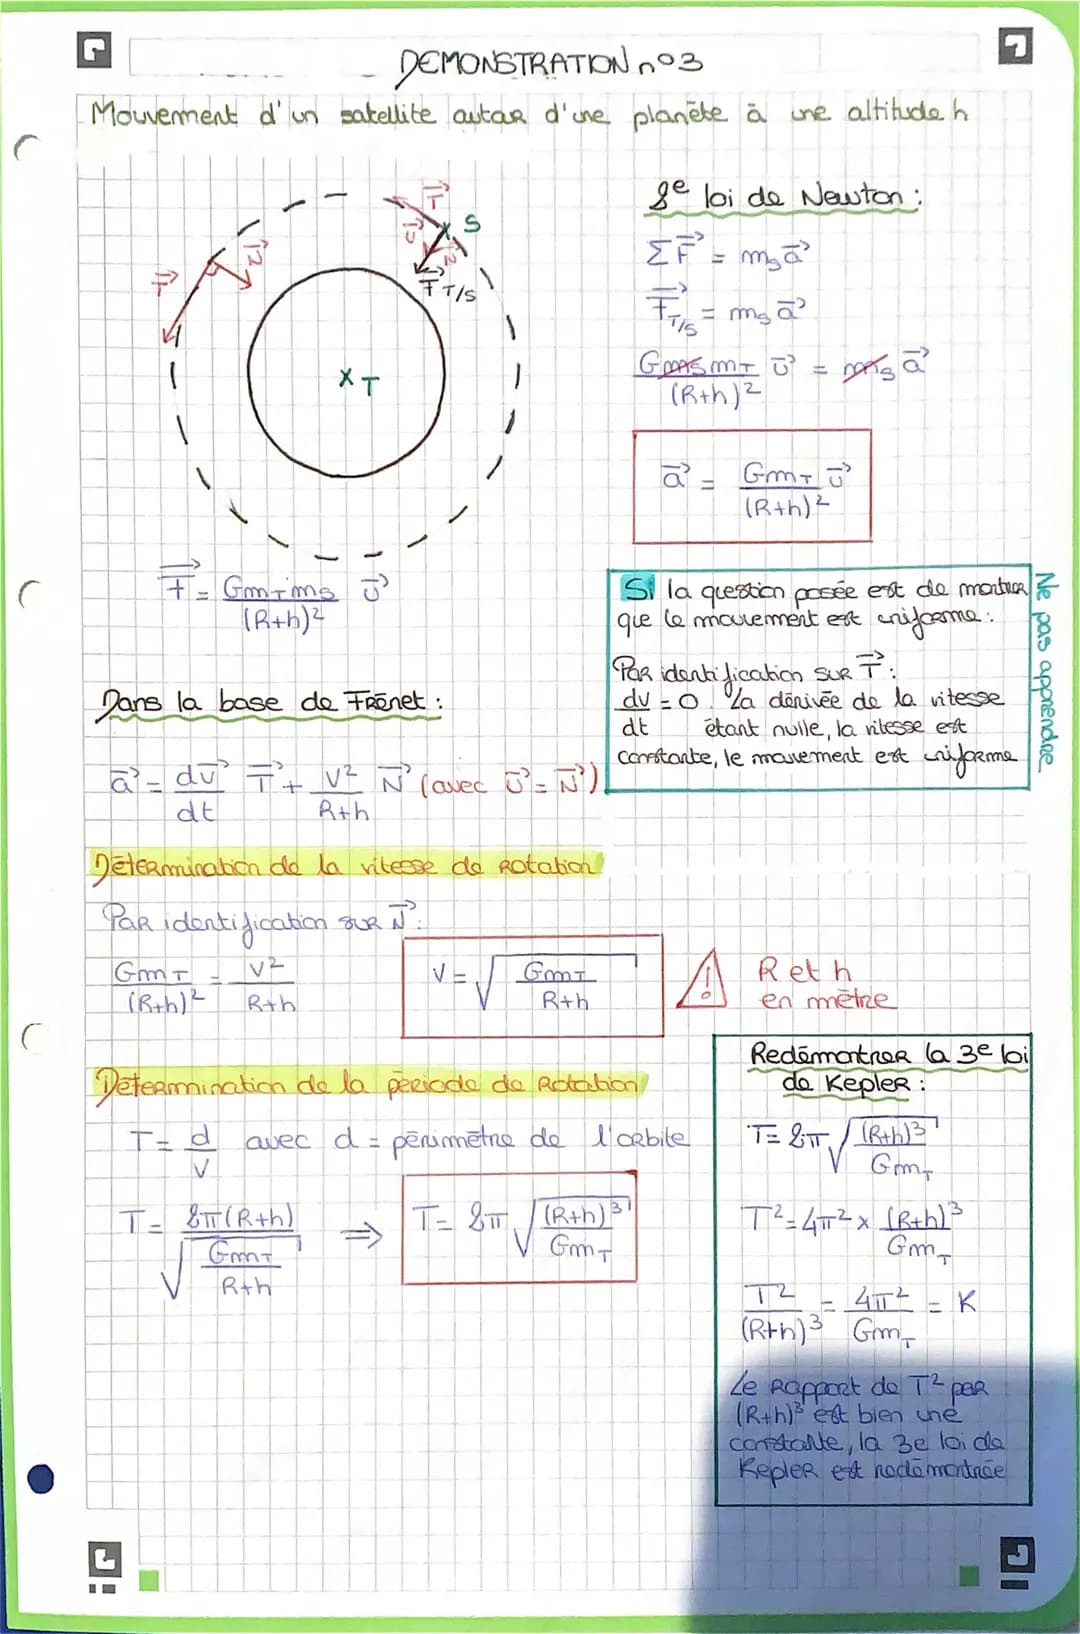 DEMONSTRATION n°3
Mouvement d'un satellite autour d'une planète à une altitude h
T
N
T
U
S
N
F T/S
x T
2e loi de Newton :
ΣF⃗ = mₛa⃗
F⃗T/S = mₛ a⃗
GmSmT/(R+h)² u⃗ = mₛ a⃗
a⃗ = GmT/(R+h)² u⃗
F⃗ = GmTmS/(R+h)² u⃗
Si la question posée est de montrer
que le mouvement est uniforme :
Par identification sur T⃗ :
dv/dt = 0. La dérivée de la vitesse
étant nulle, la vitesse est
constante, le mouvement est uniforme
Ne pas apprendre
Dans la base de Frénet :
a⃗ = dv⃗/dt T⃗ + v²/R+h N⃗ (avec u⃗ = N⃗)
Détermination de la vitesse de rotation
Par identification sur N⃗ :
GmT/(R+h)² = v²/R+h
v = √(GmT/R+h)
! R et h
en mètre
Détermination de la période de rotation
T = d/v avec d = périmètre de l'orbite
T = 2π(R+h)/√(GmT/R+h) ⇒ T = 2π √((R+h)³/GmT)
Redémontrer la 3e loi
de Kepler :
T = 2π √((R+h)³/GmT)
T² = 4π² x (R+h)³/GmT
T²/(R+h)³ = 4π²/GmT = K
Le rapport de T² par
(R+h)³ est bien une
constante, la 3e loi de
Kepler est redémontrée